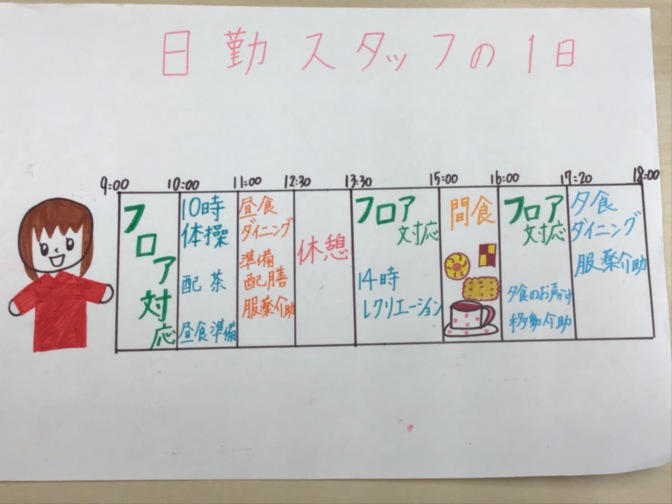 日勤スタッフの1日
9:00 10:00 11:00 12:30 13:30 15:00 16:00 17:20 18:00
フロア対応
10時
体操
配茶
昼食準備
昼食
ダイニング
準備
配膳
服薬介助
休憩
フロア
対応
14時
レクリエーション
間食
フロア
対応
夕食のお声かけ
移動介助
夕食
ダイニング
服薬介助